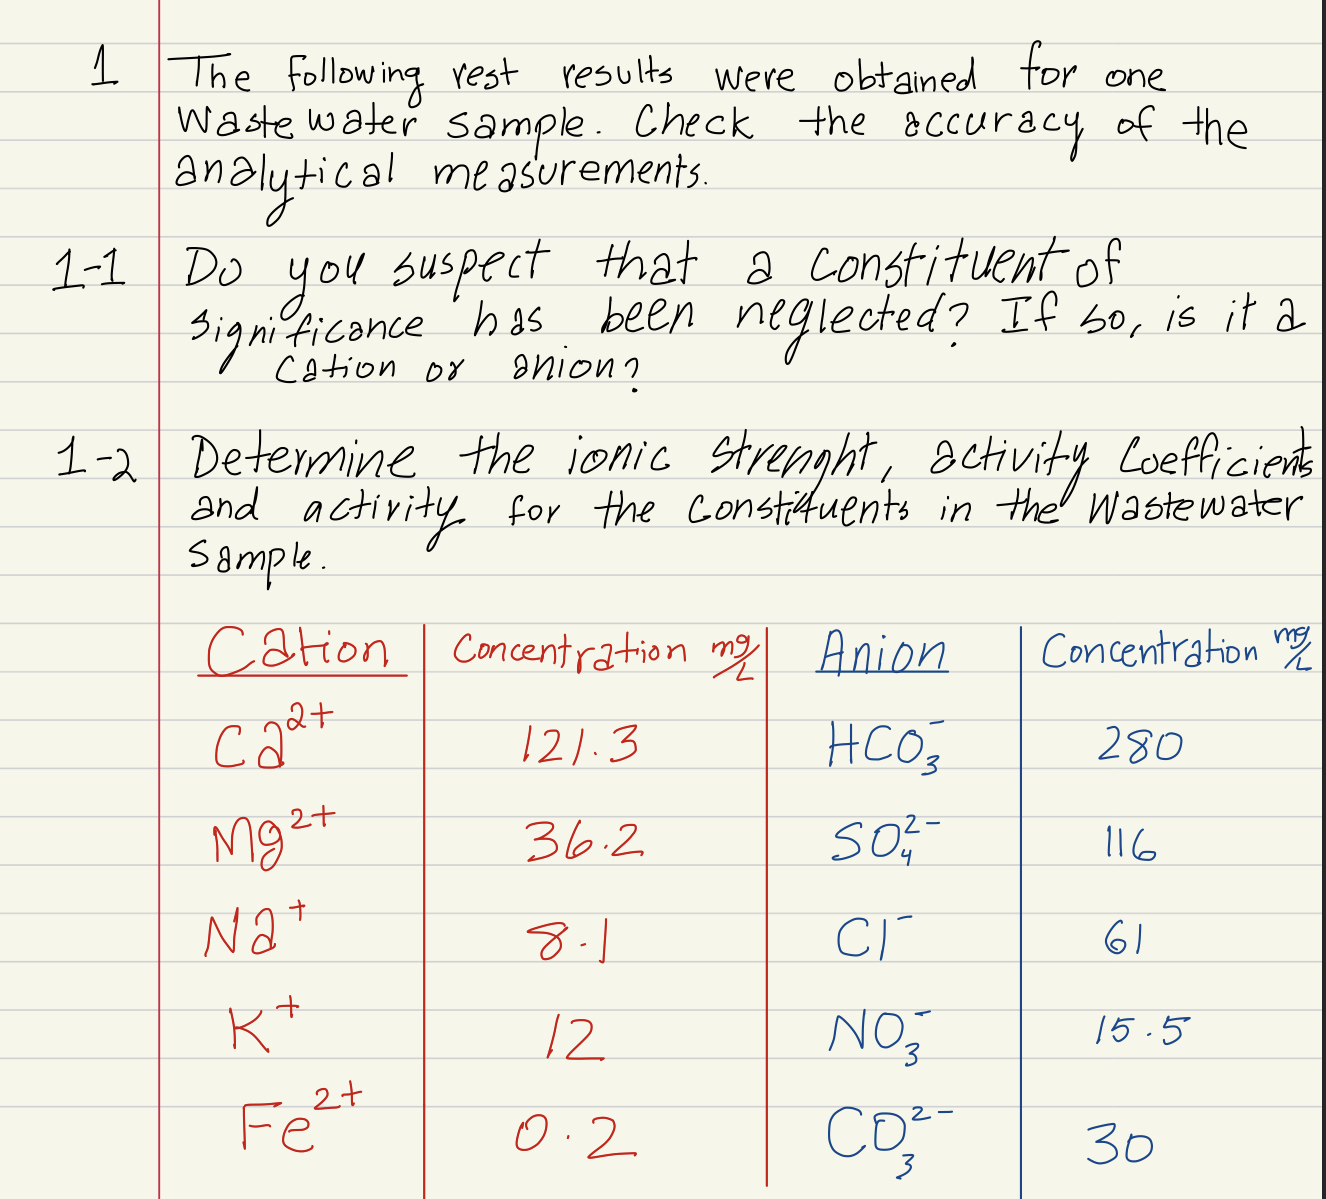 1 The following rest results were obtained for one
Waste water sample. Check the accuracy of the
analytical measurements.
1-1 Do you suspect that a constituent of
significance has been neglected? If so, is it a
cation or anion?
1-2 Determine the ionic strenght, activity Coefficients
and activity for the constituents in the Wastewater
Sample.
Cation Concentration mg/L Anion Concentration mg/L
Ca²⁺ 121.3 HCO₃⁻ 280
Mg²⁺ 36.2 SO₄²⁻ 116
Na⁺ 8.1 Cl⁻ 61
K⁺ 12 NO₃⁻ 15.5
Fe²⁺ 0.2 CO₃²⁻ 30